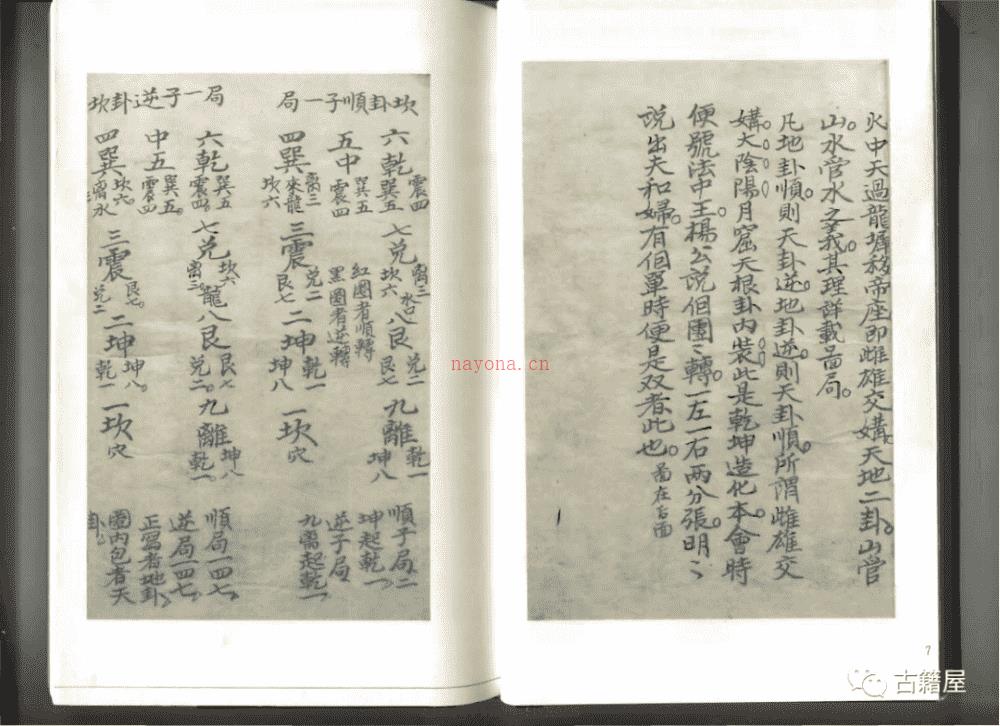 火中天過龍墀移帝座即雌雄交媾天地二卦山管
山水管水之義其理詳載啚局
凡地卦順則天卦逆地卦逆則天卦順所謂雌雄交
媾大陰陽月窟天根卦內裝此是乾坤造化本會時
便號法中王楊公說個團〻轉一左一右兩分張明〻
說出夫和婦有個單時便是双者此也啚在右面
坎卦順子一局
六乾 震四 巽五
七兌 離三 坎六 水口
八艮 兌二 艮七
九離 乾一 坤八
順子局二
坤起乾一
五中 巽五 震四
紅圈者順轉
黑圈者逆轉
逆子局
九離起乾一
四巽 離三 來龍 坎六
三震 兌二 艮七
二坤 乾一 坤八
一坎 穴
坎卦逆子一局
六乾 巽五 震四
七兌 坎六 離三
龍
八艮 艮七 兌二
九離 坤八 乾一
順局一四七
逆局一四七
中五 巽五 震四
四巽 坎六 離水
三震 艮七 兌二
二坤 坤八 乾一
一坎 穴
正寫者地卦
圈內包者天
卦
7
nayona.cn
古籍屋